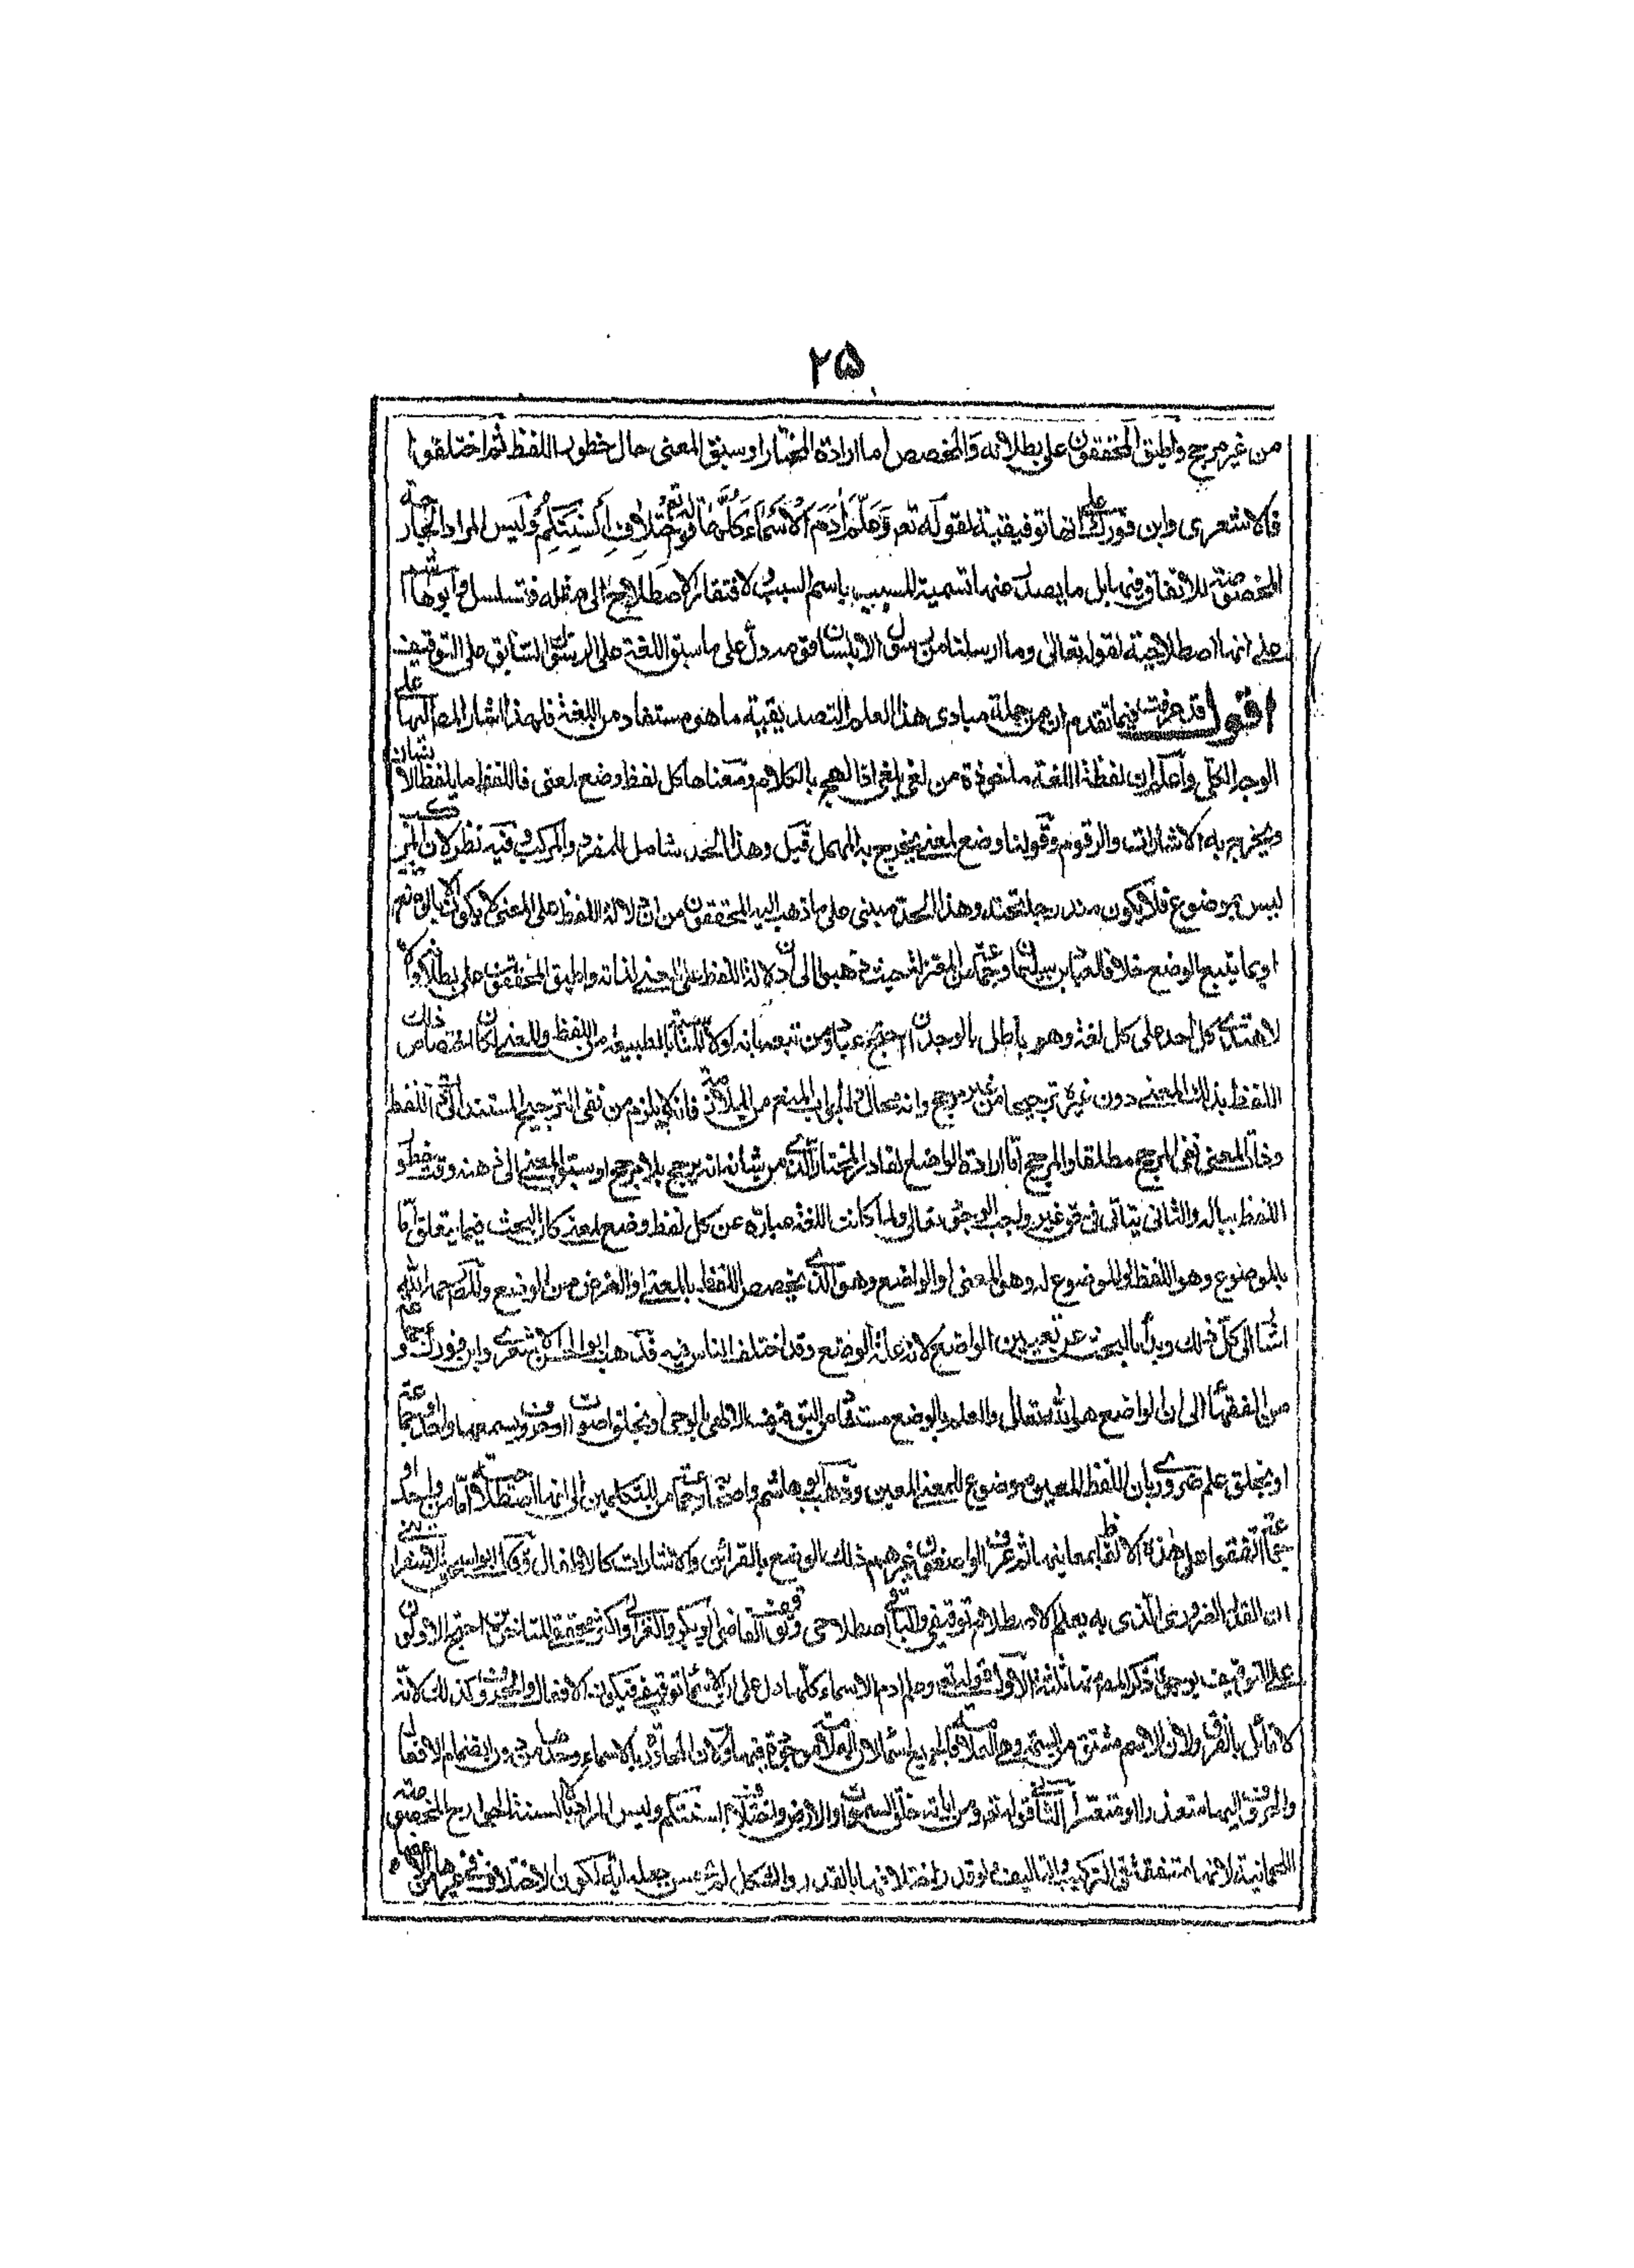 ٢٥
من غير مرجح واطبق المحققون على بطلانه والمخصص اما ارادة المختار او سبق المعنى حال خطور اللفظ ثم اختلفوا
فالاشعرى وابن فورك على انها توقيفية لقوله تعم وَعَلَّمَ اٰدَمَ الْاَسْمَاءَ كُلَّهَا واختلاف اَلْسِنَتِكُمْ وليس المراد الجارحة
المخصوصة للاتفاق فيها بل ما يصدر عنها تسمية للمسبب باسم السبب ولافتقار الاصطلاح الى مثله فتسلسل وابو هاشم
على انها اصطلاحية لقوله تعالى وما ارسلنا من رسول الا بلسان قومه دل على سبق اللغة على الرسل السابق على التوقيف
اقول قد عرفت فيما تقدم ان من جملة مبادى هذا العلم التصديقية ما هو مستفاد من اللغة فلهذا اشار المصر اليها على
الوجه الكلى واعلم ان لفظة اللغة ماخوذة من لغى يلغى اذا لهج بالكلام ومعناها كل لفظ وضع لمعنى فاللفظ ما يلفظ
ويخرج به الاشارات والرقوم وقولنا وضع لمعنى يخرج به المهمل قيل وهذا الحد شامل للمفرد والمركب وفيه نظر لان المركب
ليس بموضوع فلا يكون مندرجا تحته وهذا الحد مبنى على ما ذهب اليه المحققون من ان دلالة اللفظ على المعنى لا يكون الا بالوضع
او بما يتبع الوضع خلافا لعباد بن سليمان وجماعة من المعتزلة حيث ذهبوا الى ان دلالة اللفظ على المعنى لذاته واطبق المحققون على بطلانه والا
لاهتدى كل احد على كل لغة وهو باطل بالوجدان احتج عباد ومن تبعه بانه لولا المناسبة الطبيعية بين اللفظ والمعنى لكان اختصاص ذلك
اللفظ بذلك المعنى دون غيره ترجيحا من غير مرجح وانه محال والجواب المنع من الملازمة فانه لا يلزم من نفى الترجيح المستند الى اللفظ
المعنى نفى المرجح مطلقا والمرجح اما ارادة الواضع القادر المختار الذى من شانه ان يرجح بلا مرجح او سبق المعنى الى ذهنه وقت خطور
اللفظ بباله والثانى يتاتى فى غير واجب الوجود تعالى ولما كانت اللغة عبارة عن كل لفظ وضع لمعنى كان البحث فيما يتعلق اما
بالموضوع وهو اللفظ او الموضوع له وهو المعنى او الواضع وهو الذى يخصص اللفظ بالمعنى او الغرض من الوضع والمصر رحمه الله
اشار الى كل ذلك وبدأ بالبحث عن تعيين الواضع لانه علة الوضع وقد اختلف الناس فيه فذهب ابو الحسن الاشعرى وابن فورك وجماعة
من الفقهاء الى ان الواضع هو الله تعالى والعلم بالوضع مستفاد من التوقيف الالهى بالوحى او بخلق اصوات وحروف ويسمعها واحد او جماعة
او بخلق علم ضرورى بان اللفظ المعين موضوع للمعنى المعين وذهب ابو هاشم واصحابه وجماعة من المتكلمين الى انها اصطلاحية اما من واحد او
جماعة اتفقوا على هذه الالفاظ بمعانيها ثم عرف الواضعون غيرهم ذلك الوضع بالقرائن والاشارات كالاطفال وقال ابو اسحق الاسفراينى
ان القدر الضرورى الذى به يعلم الاصطلاح توقيفى والباقى اصطلاحى وتوقف القاضى ابو بكر والغزالى واكثر محققى المتاخرين احتج الاولون
على التوقيف بوجوه ذكر المصر منها ثلثة الاول قوله تعم وعلم ادم الاسماء كلها دل على ان الاسماء توقيفية فيكون الافعال والحروف كذلك لانه
لا قائل بالفرق ولان الاسم مشتق من السمة وهى العلامة فالجميع اسماء لان العلامة موجودة فيها ولان التحاور بالاسماء وحدها من دون انضمام الافعال
والحروف اليها متعذر او متعسر الثانى قوله تعم ومن اياته خلق السموات والارض واختلاف السنتكم وليس المراد بالسنة الجوارح المخصوصة
الجسمانية لانها متفقة فى التركيب والتاليف ولو قدر اختلافها بالقدر والشكل لم يحسن جعله اية لكون الاختلاف فى غيرها